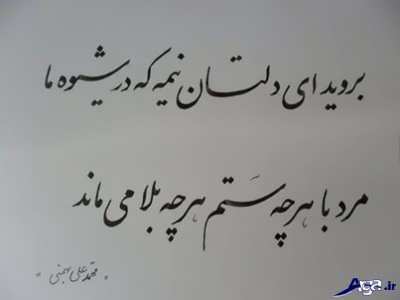 بروید ای دلتان نیمه که در شیوه ما
مرد با هرچه ستم هرچه بلا می ماند
"محمد علی بهمنی"
Aga.ir